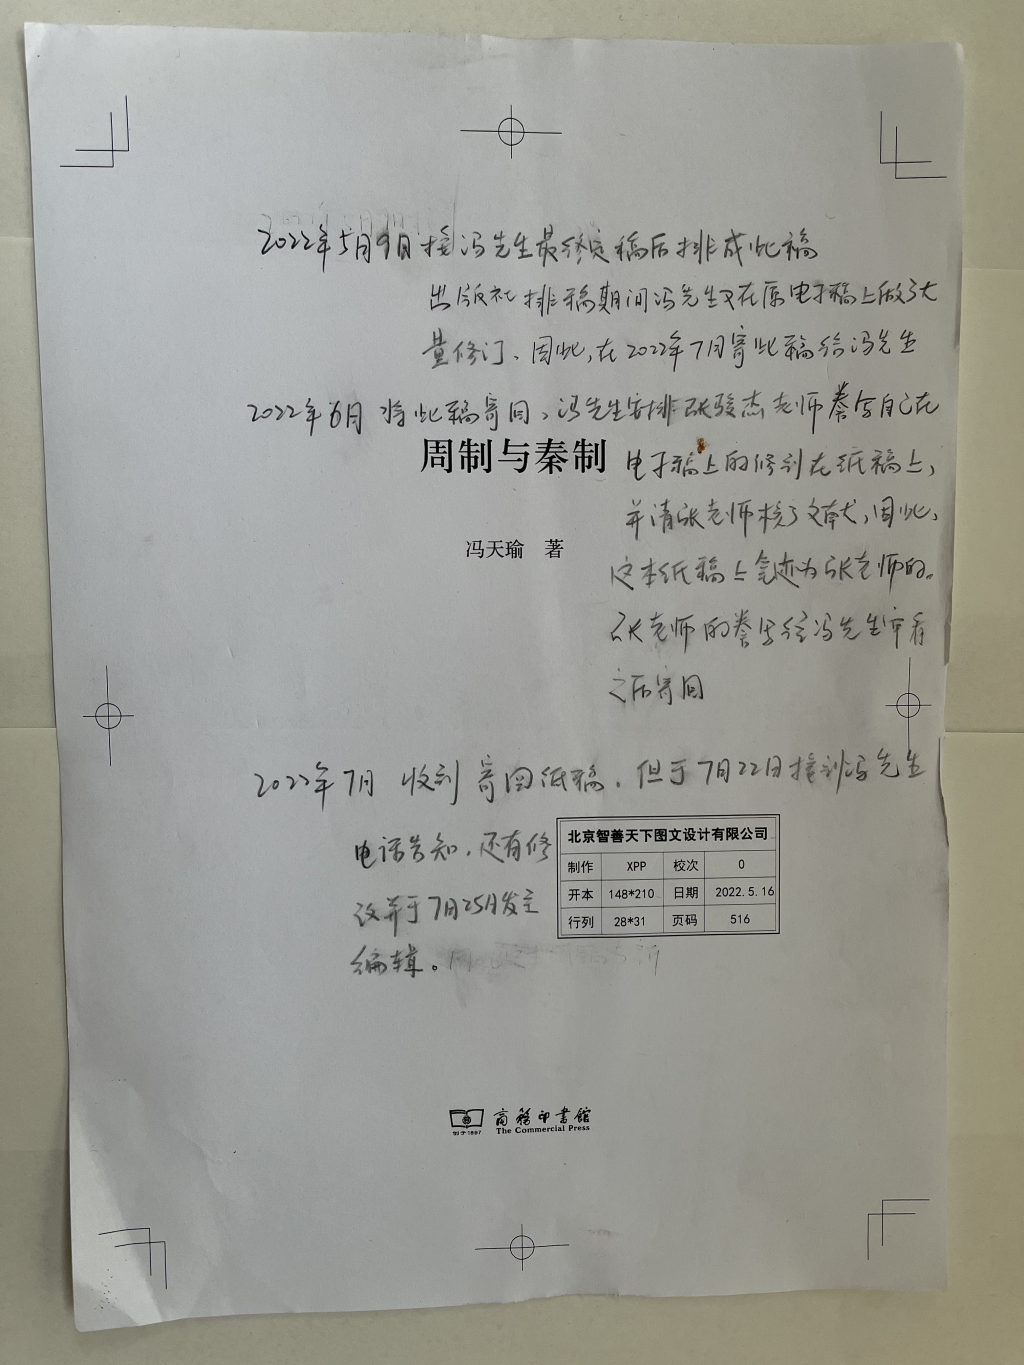 2022年5月9日接冯先生最终定稿后排成此稿
出版社排稿期间冯先生又在原电子稿上做了大
量修订、因此,在2022年7月寄此稿给冯先生
2022年6月 将此稿寄回、冯先生安排张骏杰老师誊写自己在
周制与秦制
电子稿上的修到在纸稿上,
并请张老师核了文献,因此,
冯天瑜 著
这本纸稿上笔迹为张老师的。
张老师的誊写经冯先生审看
之后寄回
2022年7月 收到寄回纸稿.但于7月22日接到冯先生
电话告知,还有修
改并于7月25日发至
编辑。
北京智善天下图文设计有限公司
制作 XPP 校次 0
开本 148*210 日期 2022.5.16
行列 28*31 页码 516
商务印书馆
创于1897 The Commercial Press